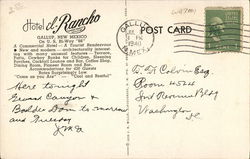 Hotel el Rancho
GALLUP, NEW MEXICO
On U. S. Hi-Way "66"
A Commercial Hotel - A Tourist Rendezvous
New and modern - architecturally interesting
with many unusual features - Terrace,
Patio, Cowboy Bunks for Children, Sleeping
Porches, Cocktail Lounge and Bar, Coffee Shop,
Dining Room, Pioneer Room and Bar.
Accommodations for 420 Guests
Rates Surprisingly Low
"Come as you Are" - "Cool and Restful"
Here tonight
Grand Canyon &
Boulder Dam tomorrow
and Thursday
GALLUP
1940
N.MEX.
POST CARD
Colvin Esq
Room 4524
Int Revenue Bldg
Washington
DC